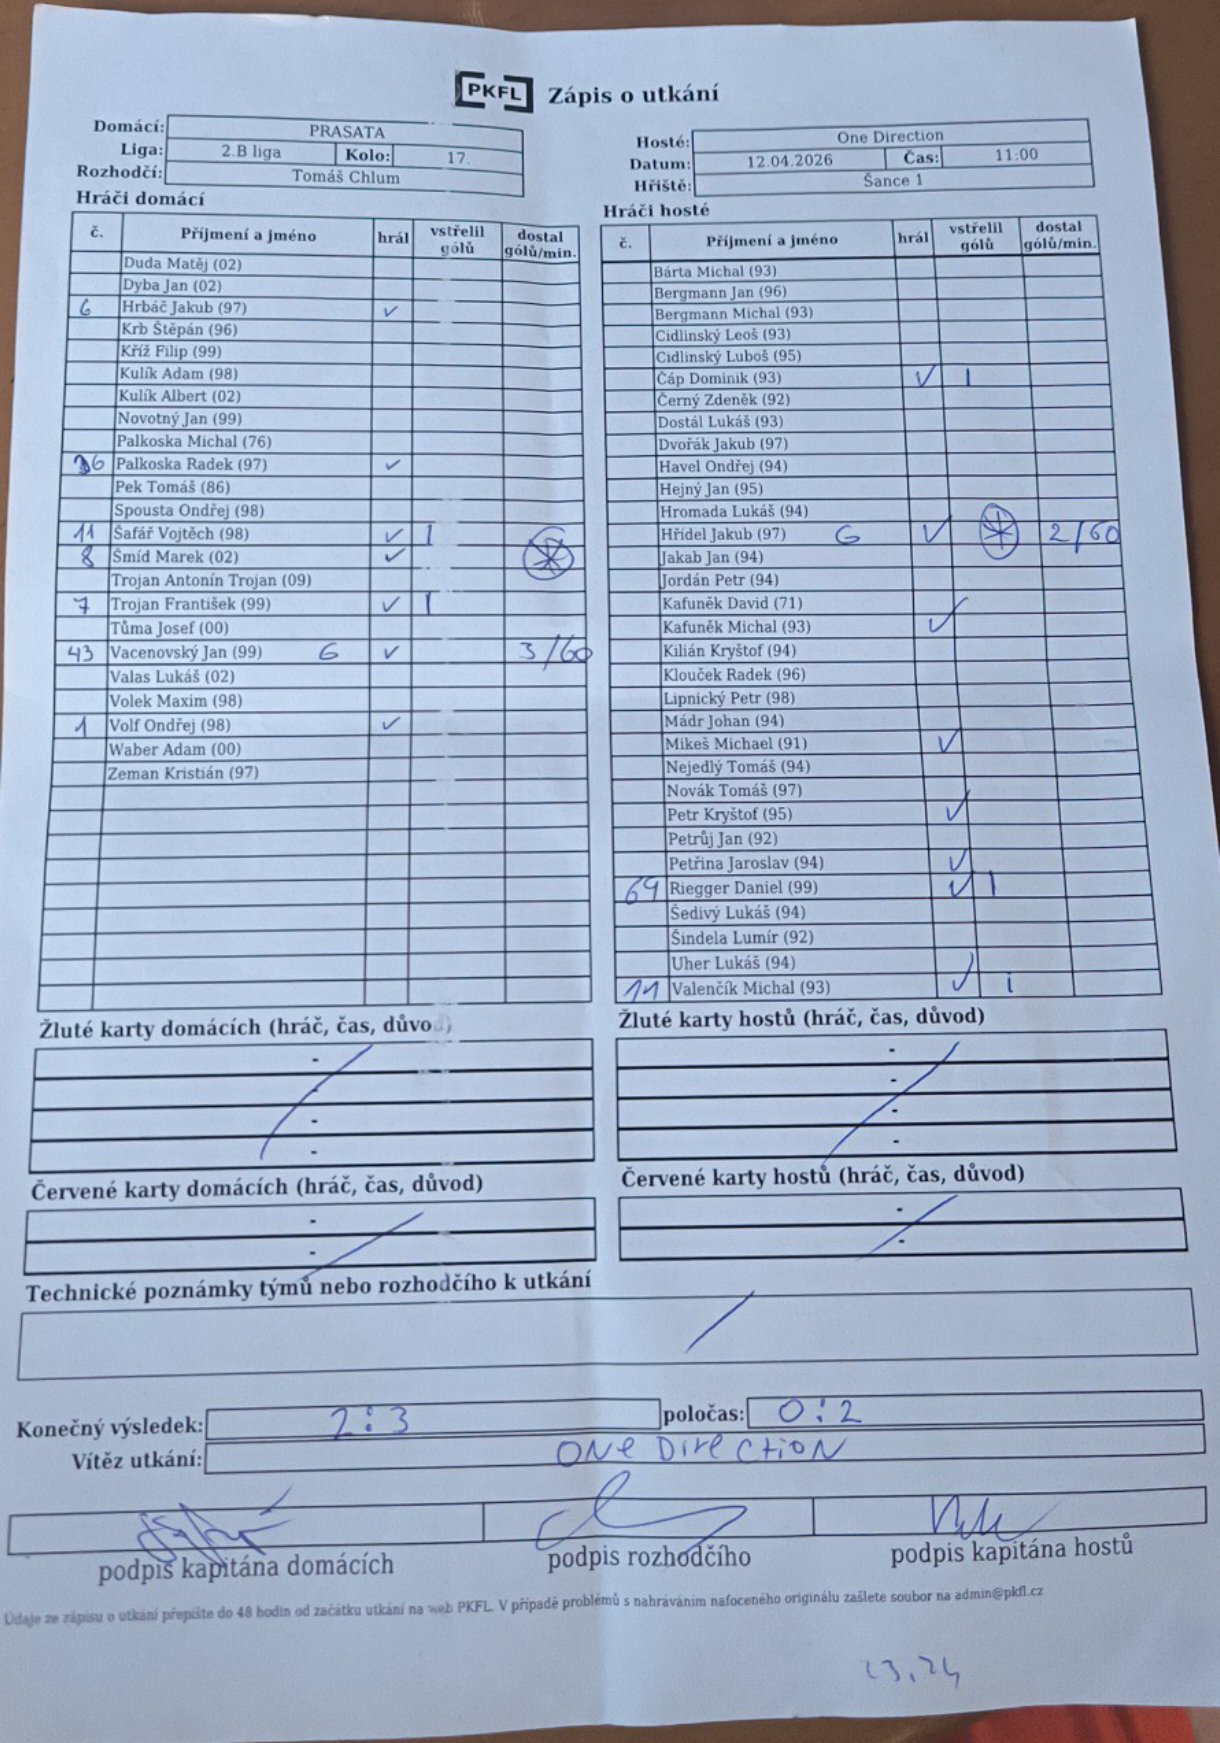 PKFL Zápis o utkání
Domácí: PRASATA
Liga: 2.B liga Kolo: 17.
Rozhodčí: Tomáš Chlum
Hosté: One Direction
Datum: 12.04.2026 Čas: 11:00
Hřiště: Šance 1
Hráči domácí
č. Příjmení a jméno hrál vstřelil gólů dostal gólů/min.
Duda Matěj (02)
Dyba Jan (02)
6 Hrbáč Jakub (97) ✓
Krb Štěpán (96)
Kříž Filip (99)
Kulík Adam (98)
Kulík Albert (02)
Novotný Jan (99)
Palkoska Michal (76)
Palkoska Radek (97) ✓
Pek Tomáš (86)
Spousta Ondřej (98)
11 Šafář Vojtěch (98) ✓ 1
8 Šmíd Marek (02) ✓
Trojan Antonín Trojan (09)
7 Trojan František (99) ✓ 1
Tůma Josef (00)
43 Vacenovský Jan (99) G ✓ 3/60
Valas Lukáš (02)
Volek Maxim (98)
1 Volf Ondřej (98) ✓
Waber Adam (00)
Zeman Kristián (97)
Hráči hosté
č. Příjmení a jméno hrál vstřelil gólů dostal gólů/min.
Bárta Michal (93)
Bergmann Jan (96)
Bergmann Michal (93)
Cidlinský Leoš (93)
Cidlinský Luboš (95)
Čáp Dominik (93) ✓ 1
Černý Zdeněk (92)
Dostál Lukáš (93)
Dvořák Jakub (97)
Havel Ondřej (94)
Hejný Jan (95)
Hromada Lukáš (94)
Hřídel Jakub (97) G ✓ 2/60
Jakab Jan (94)
Jordán Petr (94)
Kafuněk David (71)
Kafuněk Michal (93) ✓
Kilián Kryštof (94)
Klouček Radek (96)
Lipnický Petr (98)
Mádr Johan (94)
Mikeš Michael (91) ✓
Nejedlý Tomáš (94)
Novák Tomáš (97)
Petr Kryštof (95) ✓
Petrůj Jan (92)
Petřina Jaroslav (94) ✓
69 Riegger Daniel (99) ✓ 1
Šedivý Lukáš (94)
Šindela Lumír (92)
Uher Lukáš (94)
11 Valenčík Michal (93) ✓ 1
Žluté karty domácích (hráč, čas, důvod)
-
-
-
-
Žluté karty hostů (hráč, čas, důvod)
-
-
-
-
Červené karty domácích (hráč, čas, důvod)
-
-
Červené karty hostů (hráč, čas, důvod)
-
-
Technické poznámky týmů nebo rozhodčího k utkání
Konečný výsledek: 2:3 poločas: 0:2
Vítěz utkání: ONE DIRECTION
podpis kapitána domácích podpis rozhodčího podpis kapitána hostů
Údaje ze zápisu o utkání přepište do 48 hodin od začátku utkání na web PKFL. V případě problémů s nahráváním nafoceného originálu zašlete soubor na admin@pkfl.cz